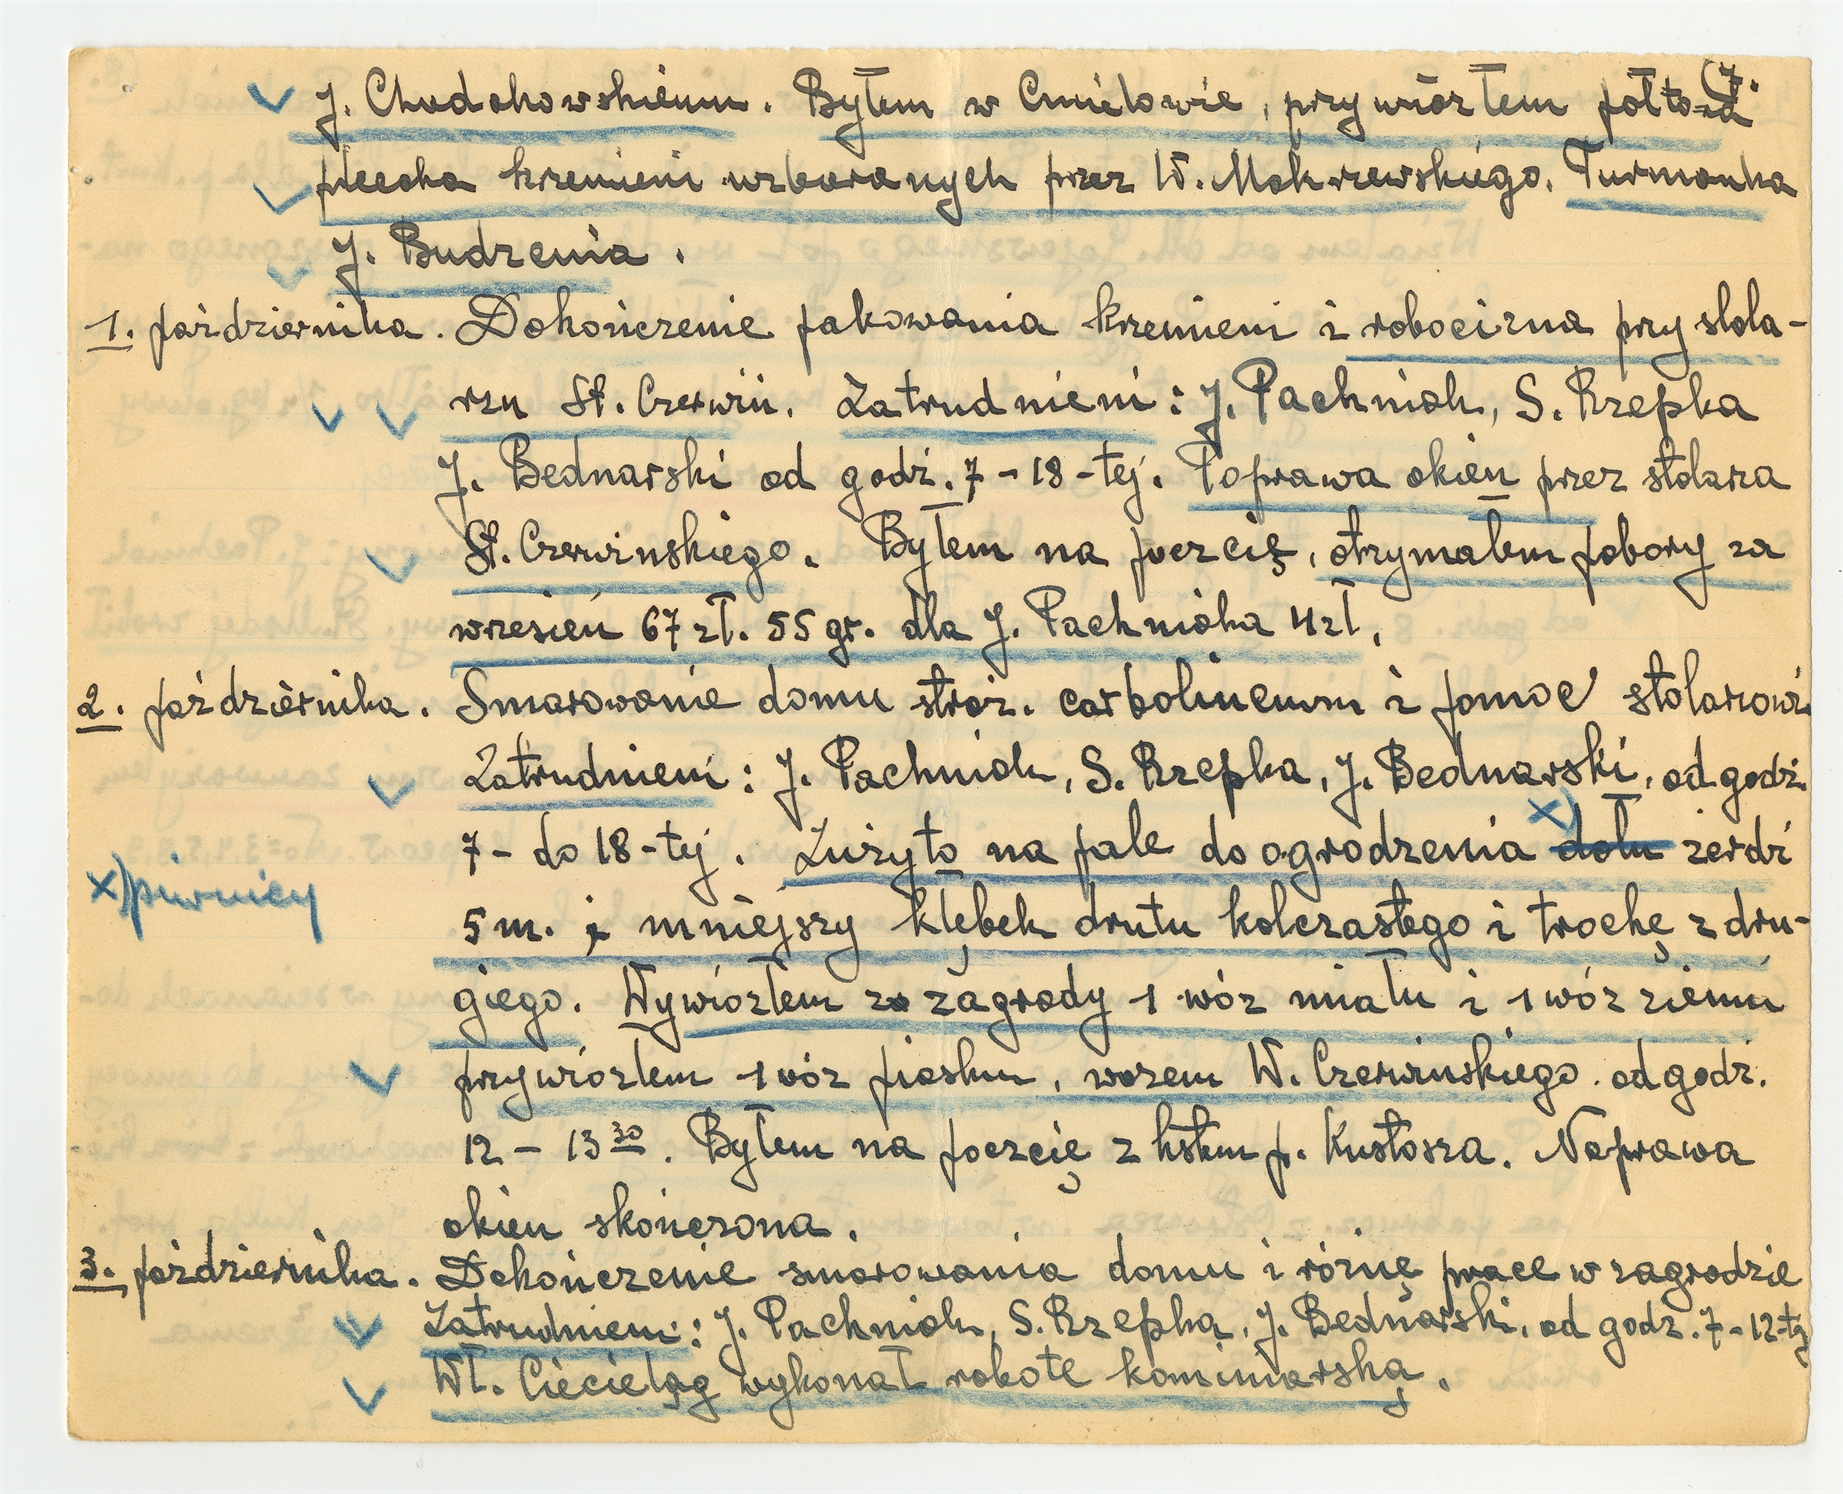 7.
J. Chudokowskiemu. Byłem w Ćmielowie, przywiozłem półtora
plecaka krzemieni uzbieranych przez W. Mokrzewskiego. Furmanka
J. Budzenia.
1. października. Dokończenie pakowania krzemieni i robocizna przy stola-
rzu St. Czerwiń. Zatrudnieni: J. Pachniak, S. Rzepka
J. Bednarski od godź. 7 - 18-tej. Poprawa okien przez stolarza
St. Czerwinskiego. Byłem na poczcię, otrzymałem pobory za
wrzesień 67 zł. 55 gr. dla J. Pachniaka 4 zł.
2. października. Smarowanie domu stróż. carbolineum i pomoc stolarowi.
Zatrudnieni: J. Pachniak, S. Rzepka, J. Bednarski, od godź.
7 - do 18-tej. Zużyto na pale do ogrodzenia x) dołu żerdzi
x) piwnicy
5 m. i mniejszy kłębek drutu kolczastego i trochę z dru-
giego. Wywiozłem z zagrody 1 wóz miału i 1 wóz ziemi
przywiozłem 1 wóz piasku, wozem W. Czerwinskiego. od godz.
12 - 13 30. Byłem na poczcię z listem p. Kustosza. Naprawa
okien skończona.
3. października. Dokończenie smarowania domu i różnę pracę w zagrodzie
Zatrudnieni: J. Pachniak, S. Rzepka, J. Bednarski, od godz. 7 - 12-tej
Wł. Ciecieląg wykonał robotę kominiarską.